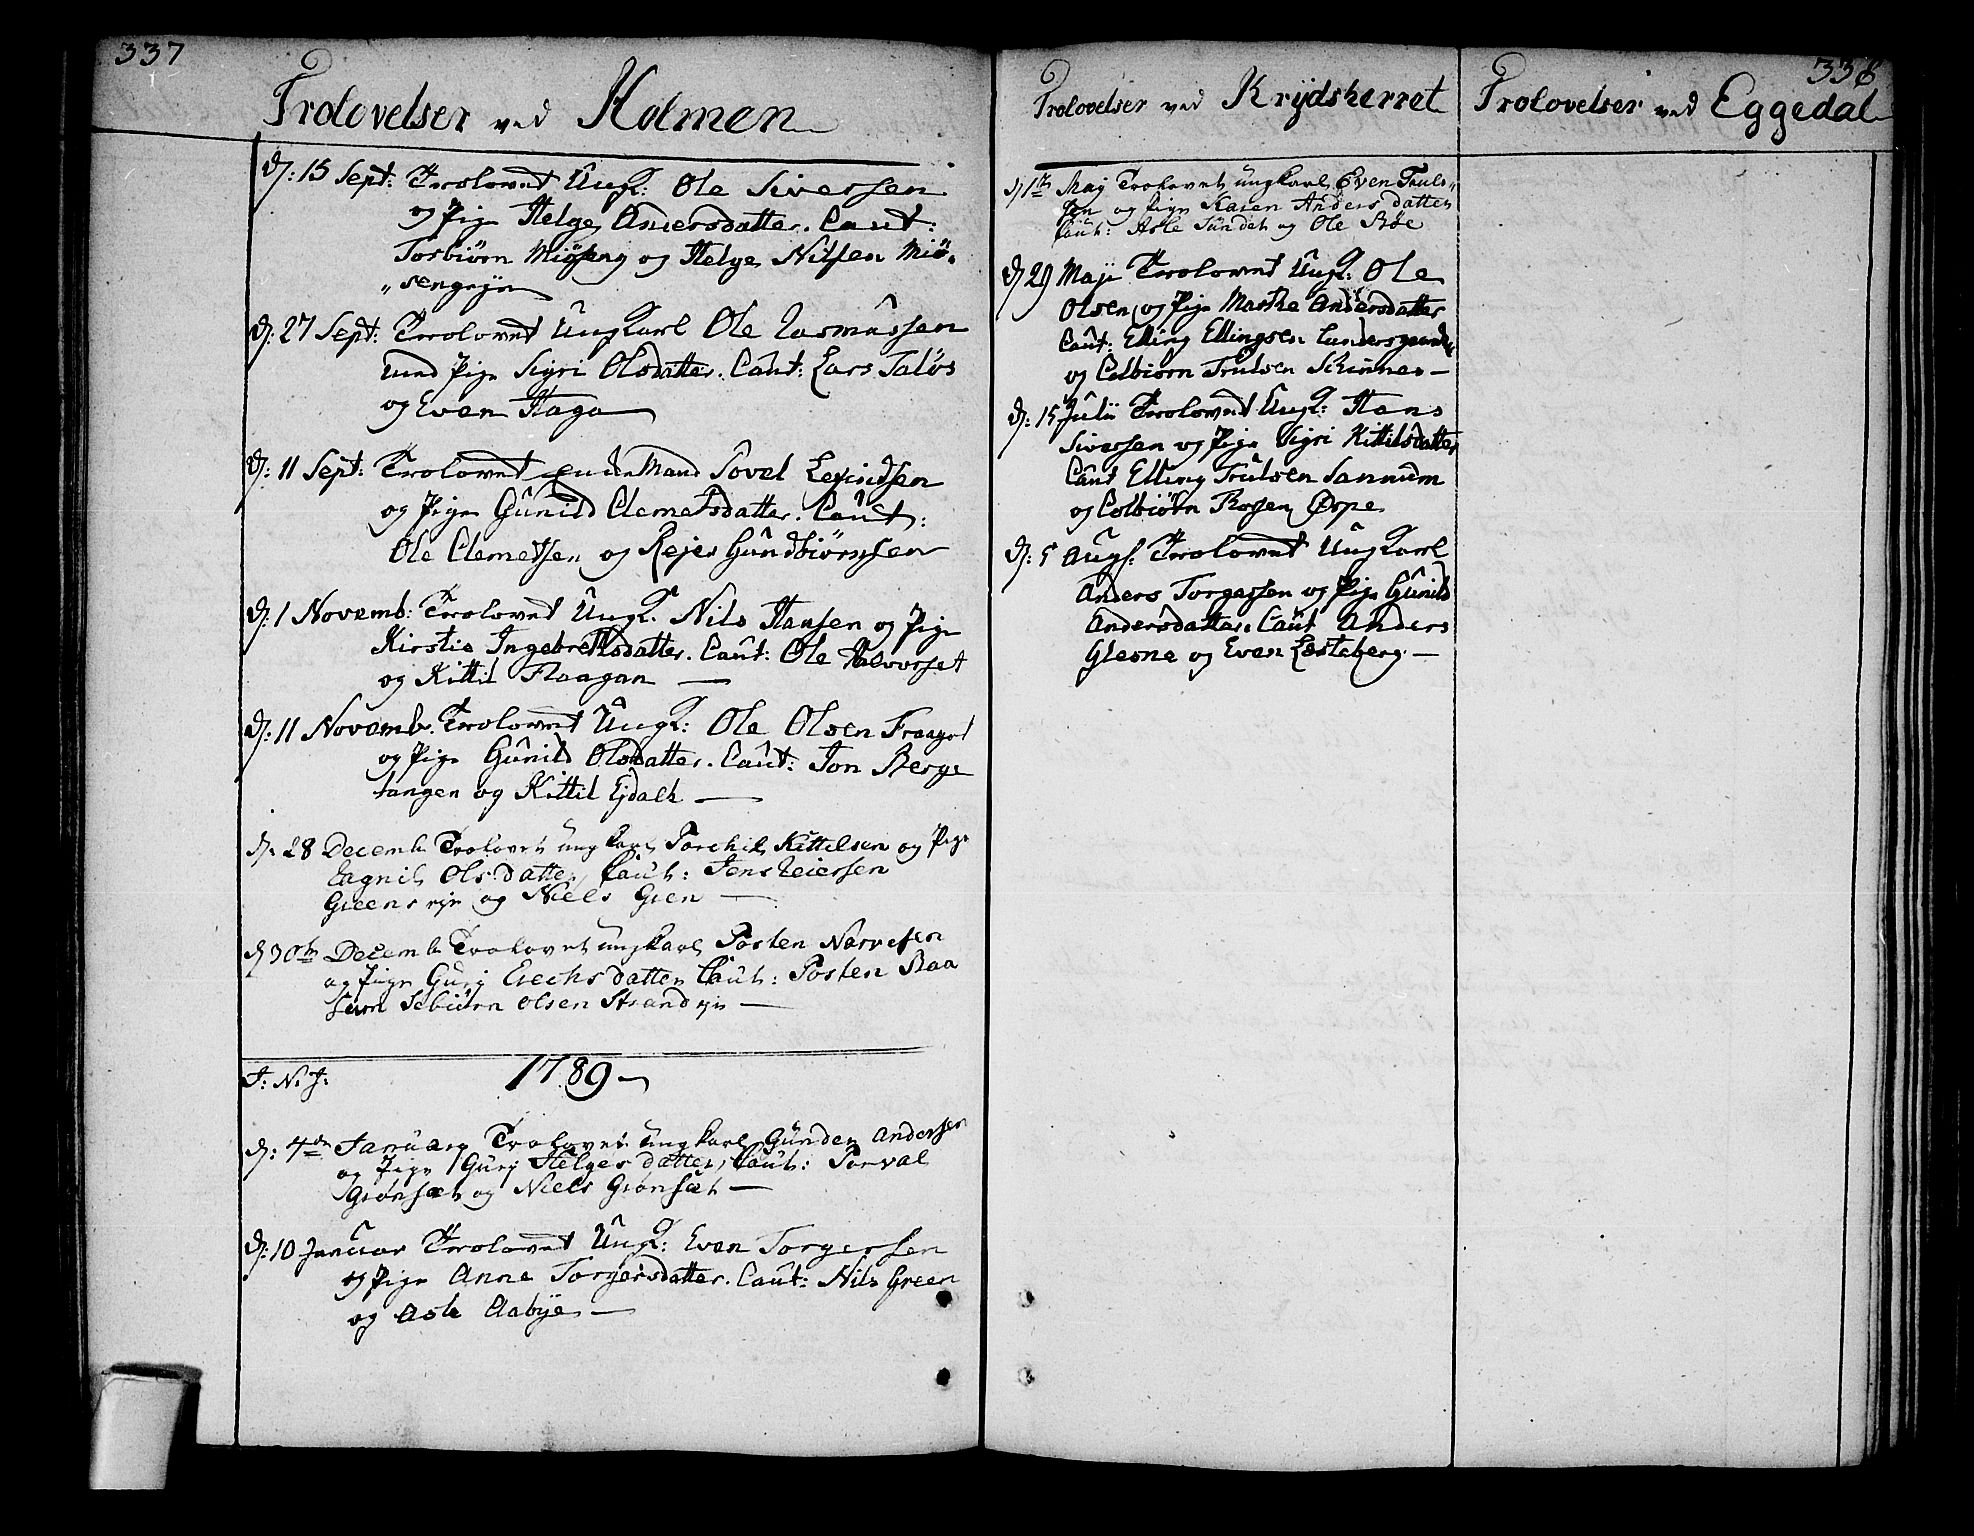 337
Trolovelser ved Holmen
D: 15 Sept: Trolovet Ungk: Ole Siversen
og Pige Helge Andersdatter. Caut:
Torbiörn Miöseng og Helge Nilsen Miö„
„sengeje
D: 27 Sept: Trolovet Ungkarl Ole Rasmussen
med Pige Sigri Olsdatter. Caut: Lars Taløs
og Even Haga
D: 11 Sept: Trolovet Enke Mand Tovel
og Pige Gunild Clemetsdatter. Caut:
Ole Clemetsen og Rejer Gundbiörnsen
D: 1 Novemb: Trolovet Ungk. Nils Hansen og Pige
Kirstie Ingebretsdatter. Caut: Ole Halvorset
og Kittil Flaagan —
D: 11 Novemb. Trolovet Ungk: Ole Olsen
og Pige Gunild Olsdatter. Caut: Jon Berge
tangen og Kittil Ejdalt —
D: 28 Decemb Trolovet ungkarl Torchil Kittilsen og Pige
Ragnil Olsdatter, Caut: Jens Reiersen
Greens eje og Niels Gren —
D 30te Decemb Trolovet ungkarl Tosten Narvesen
og Pige Gurj Erechsdatter Caut: Tosten Raa
Sebiörn Olsen Strand eje —
J: N: J: 1789 —
D: 4de Januarj Trolovet ungkarl Gunder Andersen
og Pige Gurj Helgesdatter, Caut: Torval
Grønset og Niels Grønsæt —
D: 10 Januar Trolovet Ungk: Even Torgersen
og Pige Anne Torgersdatter. Caut: Nils Green
og Asle Aabye —
Trolovelser ved Krydsherret
D 1te Maj Trolovet ungkarl Even Truls„
sen og Pige Karen Andersdatter
Caut: Asle Sundet og Ole Røe
D 29 Maji Trolovet Ungk: Ole
Olsen og Pige Marthe Andersdatter
Caut: Elling Ellingsen
og Colbiörn Trulsen Skinnes —
D: 15 Julii Trolovet Ungk: Hans
Siversen og Pige Sigri Kittilsdatter
Caut Elling Trulsen Sannum
og Colbiörn Ørpe
D: 5 Augs: Trolovet Ungkarl
Anders Torgersen og Pige Gunild
Andersdatter. Caut Anders
Glesne og Even Lesteberg —
338
Trolovelser ved Eggedal